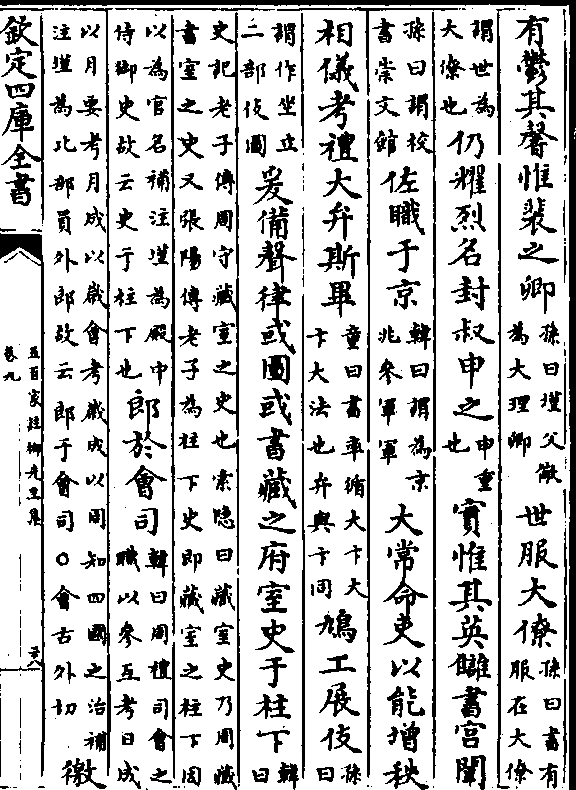 有鬱其馨惟裴之卿孫曰墐父儆為大理卿世服大僚孫曰書有服在大僚
謂世為大僚也仍耀烈名封叔申之申重也實惟其英讎書宫闈
孫曰謂校書崇文館佐職于京韓曰謂為京兆參軍軍大常命吏以能增秩
相儀考禮大弁斯畢童曰書率循大卞大卞大法也弁與卞同鳩工展伎孫曰
謂作坐立二部伎圖爰備聲律或圖或書藏之府室史于柱下韓曰
史記老子傳周守藏室之史也索隐曰藏室史乃周藏書室之史又張陽傳老子為柱下史即藏室之柱下因
以為官名補注墐為殿中侍御史故云史于柱下也郎於會司韓曰周禮司會之職以參互考日成
以月要考月成以歲會考歲成以周知四國之治補注墐為比部員外郎故云郎于會司○會古外切徴
欽定四庫全書
五百家註柳先生集
卷九